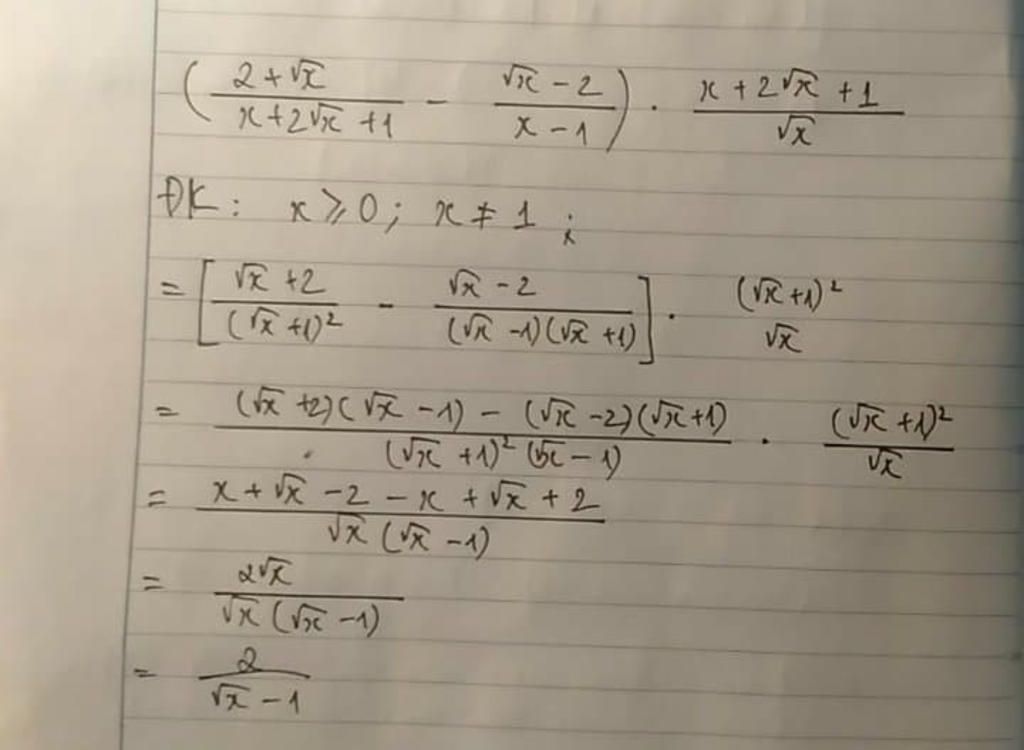 ( (2 + √x)/(x + 2√x + 1) - (√x - 2)/(x - 1) ) . (x + 2√x + 1)/√x
ĐK: x ⩾ 0; x ≠ 1 ;
= [ (√x + 2)/(√x + 1)² - (√x - 2)/((√x - 1)(√x + 1)) ] . (√x + 1)² √x
= ((√x + 2)(√x - 1) - (√x - 2)(√x + 1))/((√x + 1)² (√x - 1)) . (√x + 1)²/√x
= (x + √x - 2 - x + √x + 2)/(√x (√x - 1))
= 2√x/(√x (√x - 1))
= 2/(√x - 1)